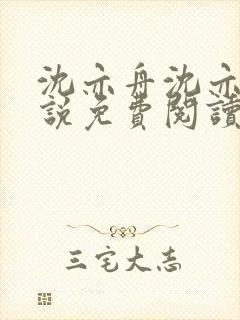 沈亦舟沈亦
說免費閱讀
三宅大志